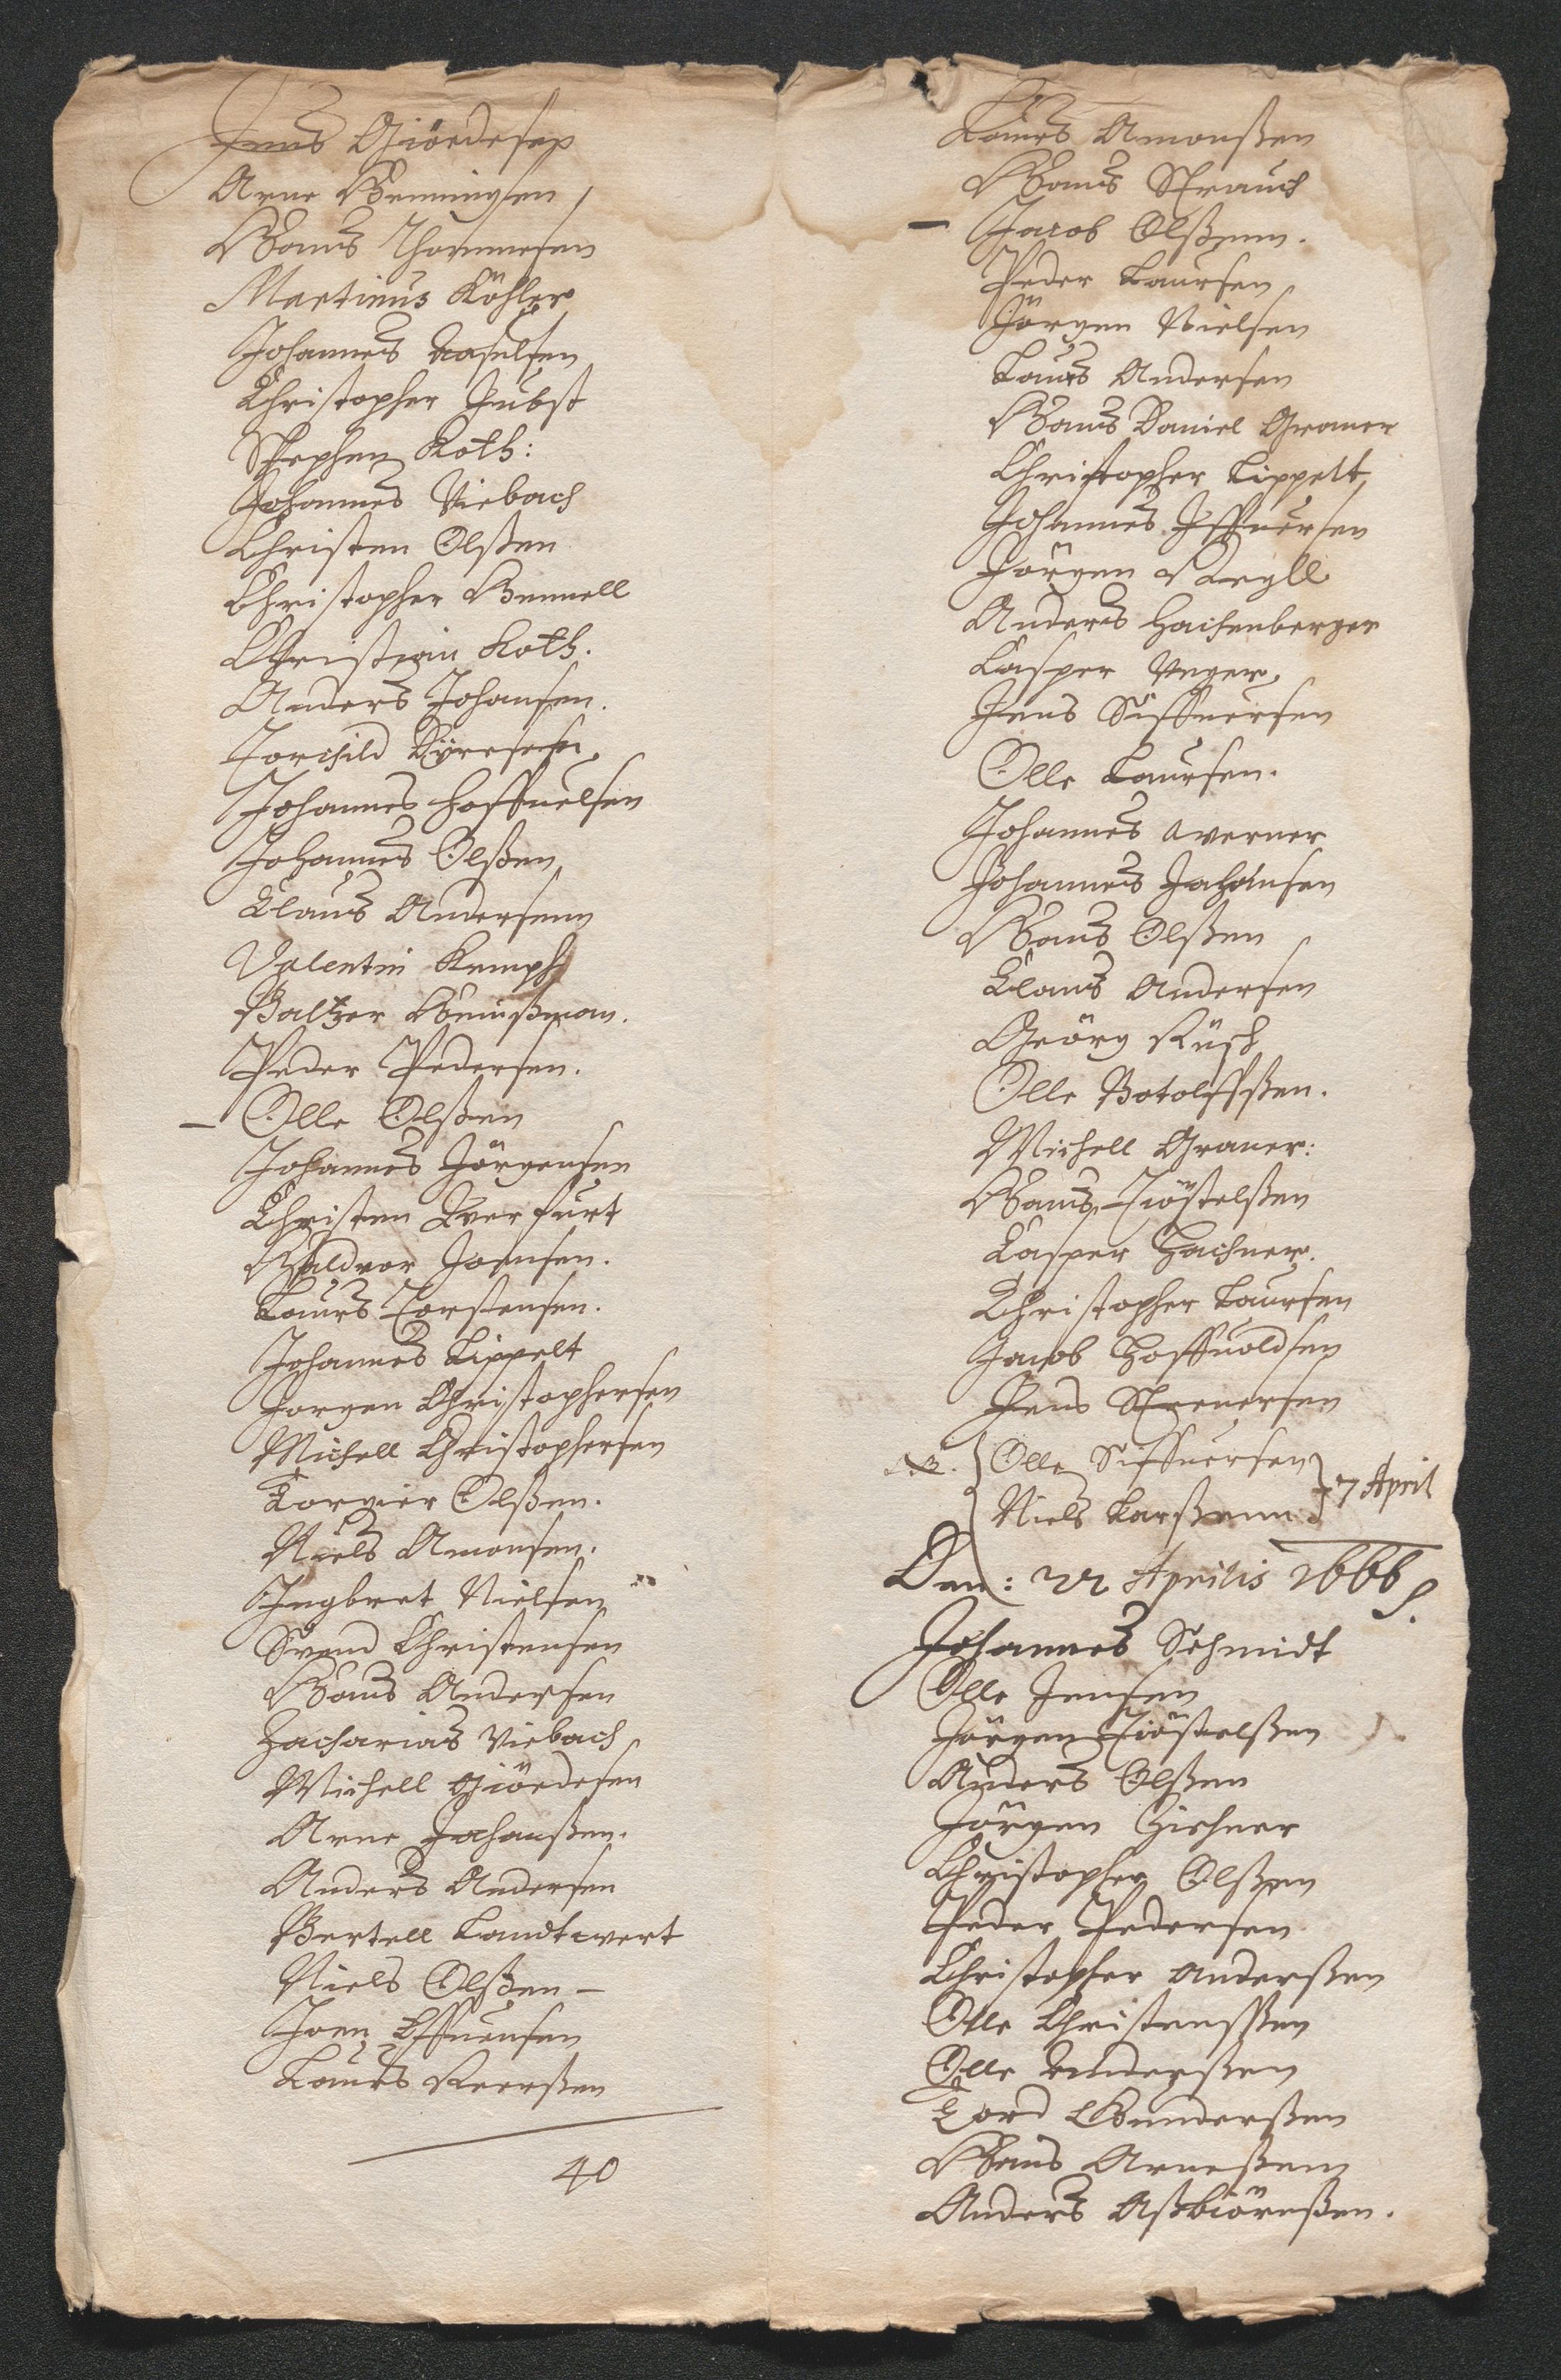 Jens Giördesen
Arne Henningsen
Hans Thommesen
Martinus Köhler
Johannes
Christopher Jubst
Stephen Koth:
Johannes Viebach
Christen Olßen
Christopher Hennell
Christian Koth.
Anders Johansen.
Torchild
Johannes Hoffuelsen
Johannes Olßen
Claus Andersenn
Valentin Kempf
Baltzer
Peder Pedersen.
— Olle Olßen
Johannes Jörgensen
Christen Querfurt
Haldvor Joensen.
Laurs Torstensen.
Johannes Lippelt
Jorgen Christophersen
Michell Christophersen
Torgier Olßen.
Niels Amonsen.
Ingbret Nielsen
Svend Christensen
Hans Andersen
Zacharias Viebach
Michell Giördesen
Arne Johanßen.
Anders Andersen
Bertell Landtwert
Niels Olßen —
Joen Effuensen
Laurs
40
Laurs Amonßen
Hans Strauch
— Jacob Olßenn.
Peder Laursen
Jörgen Nielsen
Laurs Andersen
Hans Daniel Graner
Christopher Lippelt
Johannes Iffuersen
Jörgen
Anders Hachenberger
Casper Unger,
Jens Siffuersen
Olle Laursen.
Johannes Werner
Johannes Johansen
Hans Olßen
Claus Andersen
Geörg Küsch
Olle Botolffßen.
Michell Graner:
Hans Tiöstelßen
Casper Hachner.
Christopher Laursen
Jacob Hoffuoldsen
Jens Steenersen
N.B. Olle Siffuersen
Niels Larßenn 7 April
Den: 22 Aprilis 1666
Johannes Schmidt
Olle Jensen
Jörgen Tiöstelßen
Anders Olßen
Jörgen Giehner
Christopher Olßen
Peder Pedersen
Christopher Anderßen
Olle Christensßen
Olle Anderßen
Tord Gunderßen
Hans Arneßenn
Anders Aßbiörnßen.